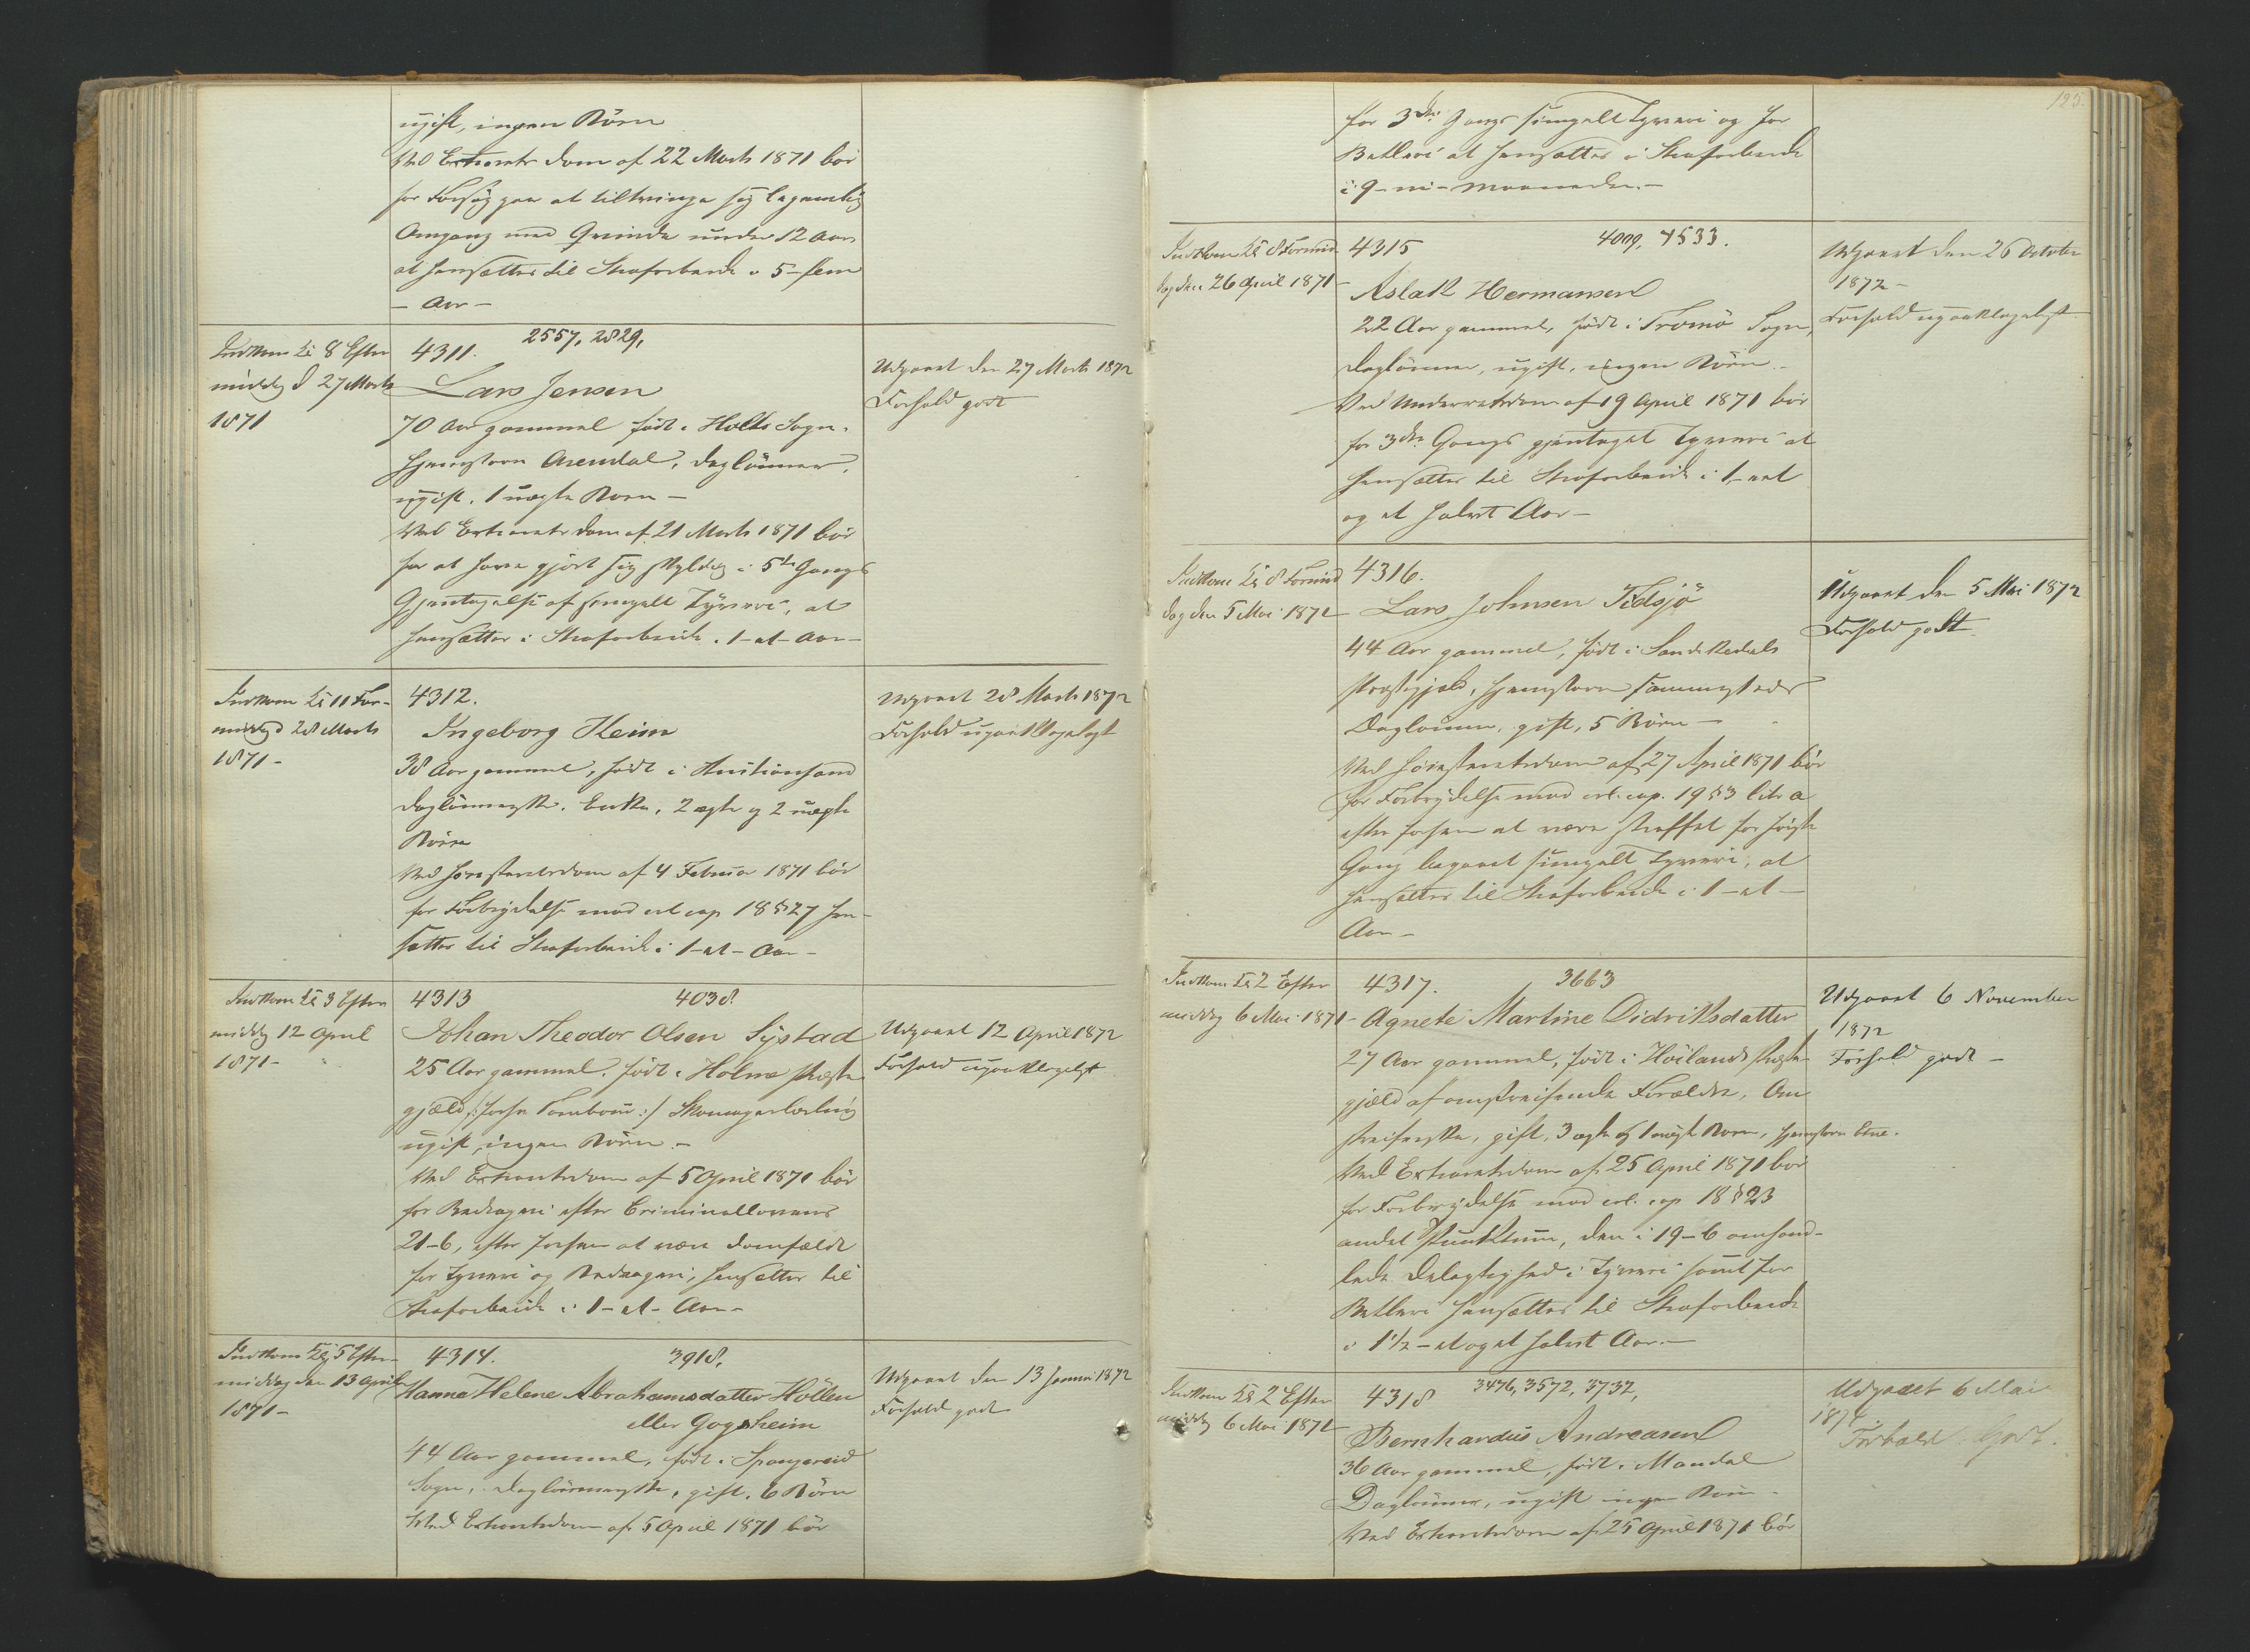 ugift, ingen Börn
Ved Extrarets Dom af 22 Marts 1871 bör
for Forsög paa at tiltvinge sig legemlig
Omgang med Qvinde under 12 Aar
at hensættes til Strafarbeide i 5 – fem
– Aar –
Indkom Kl 8 Efter
middag d 27 Marts
1871
4311. 2557, 2829,
Lars Jensen
70 Aar gammel født i Holts Sogn.
Hjemstavn Arendal, Daglönner,
ugift. 1 uægte Barn –
Ved Extrarets Dom af 21 Marts 1871 bör
for at have gjort sig skyldig i 5te Gangs
Gjentagelse af simpelt Tyveri, at
hensættes i Strafarbeide i 1 – et – Aar –
Udgaaet den 27 Marts 1872
Forhold godt
Indkom Kl 11 For-
middag d 28 Marts
1871 –
4312.
Ingeborg Heim
38 Aar gammel, født i Christiansand
Daglönnerske. Enke, 2 ægte og 2 uægte
Börn
Ved Höiesteretsdom af 4 Februar 1871 bör
for Forbrydelse mod crl cap 18 § 27 hen-
sættes til Strafarbeide i 1 – et – Aar –
Udgaaet 28 Marts 1872
Forhold upaaklageligt
Indkom Kl 3 Efter
middag 12 April
1871 –
4313 4038.
Johan Theodor Olsen Systad
25 Aar gammel. født i Holme Præste
gjæld, Skomagerlærling
ugift, ingen Börn –
Ved Extraretsdom af 5 April 1871 bör
for Bedrageri efter Criminallovens
21–6, efter forhen at være domfældt
for Tyveri og Bedrageri, hensættes til
Strafarbeide i 1 – et – Aar –
Udgaaet 12 April 1872
Forhold upaaklageligt
Indkom Kl 5 Efter-
middag den 13 April
1871 –
4314. 3918.
Hanne Helene Abrahamsdatter Höllen
eller Gogsheim
44 Aar gammel, født i Spangereid
Sogn, Daglönnerske, gift, 6 Börn
Ved Extraretsdom af 5 April 1871 bör
Udgaaet den 13 Januar 1872
Forhold godt
125.
for 3die Gangs simpelt Tyveri og for
Betleri at hensættes i Strafarbeide
i 9 – ni – Maaneder. –
Indkom Kl 8 Formid
dag den 26 April 1871 –
4315 4533.
Aslak Hermansen
22 Aar gammel, født i Tromö Sogn,
Daglönner, ugift, ingen Börn –
Ved Underretsdom af 19 April 1871 bör
for 3die Gangs gjentaget Tyveri at
hensættes til Strafarbeide i 1 – eet
og et halvt Aar –
Udgaaet den 26 October
1872 –
Forhold upaaklageligt
Indkom Kl 8 Formid
dag den 5 Mai 1871
4316.
Lars Johnsen Tidsjö
44 Aar gammel, født i Landekedals
Præstegjæld, Hjemstavn sammesteds
Daglönner, gift, 5 Börn –
Ved Höiesteretsdom af 27 April 1871 bör
for Forbrydelse mod crl. cap. 19 § 3 litr a
efter forhen at være straffet for förste
Gang begaaet simpelt Tyveri, at
hensættes til Strafarbeide i 1 – et –
Aar –
Udgaaet den 5 Mai 1872
Forhold godt
Indkom Kl 2 Efter
middag 6 Mai 1871 –
4317. 3663
Agnete Martine Didriksdatter
27 Aar gammel, født i Höilands Præste-
gjæld af omstreifende Forældre, Om
streiferske, gift, 3 ægte og 1 uægte Barn, Hjemstavn Etne.
Ved Extraretsdom af 25 April 1871 bör
for Forbrydelse mod crl. cap 18 § 23
andet Punktum, den i 19–6 omhand-
lede Delagtighed i Tyveri samt for
Betleri hensættes til Strafarbeide
i 1 1/2 – et og et halvt Aar. –
Udgaaet 6 November
1872
Forhold godt –
Indkom Kl 2 Efter
middag 6 Mai 1871
4318 3476, 3572, 3732,
Bernhardus Andreasen
36 Aar gammel, født i Mandal
Daglönner, ugift ingen Börn –
Ved Extraretsdom af 25 April 1871 bör
Udgaaet 6 Mai
Forhold Godt.